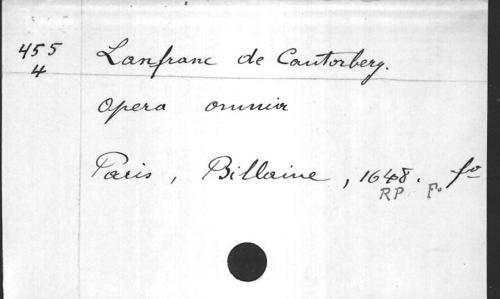 455
4
Lanfranc de Cantorbery.
Opera omnia
Paris, Billaine, 1648. fo
RP. F.